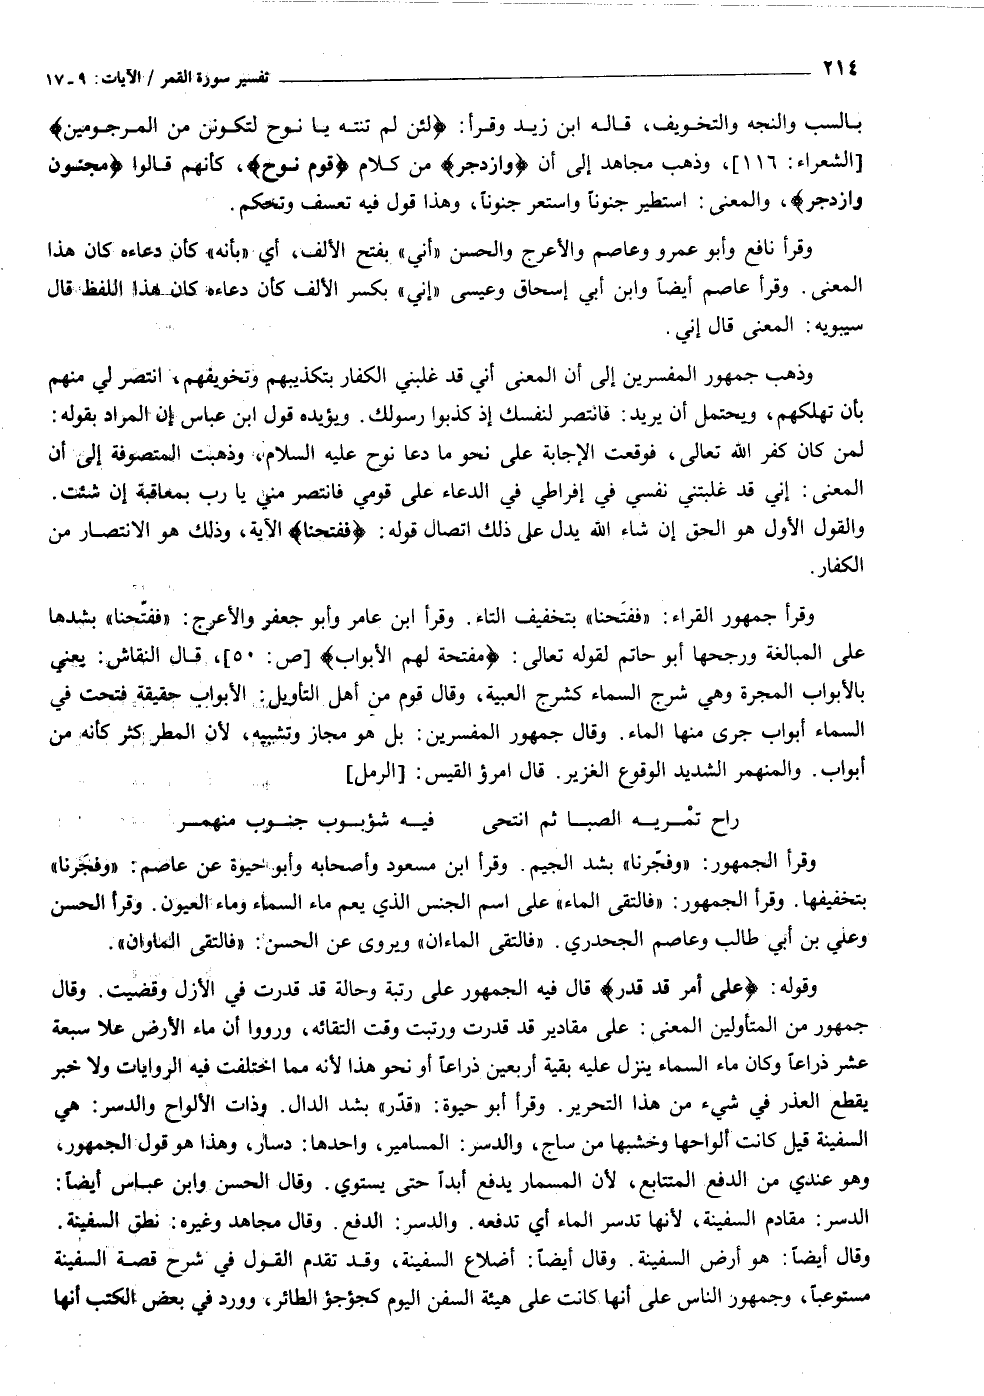 ٢١٤ تفسير سورة القمر / الآيات: ٩ـ١٧
بالسب والنجه والتخويف، قاله ابن زيد وقرأ: ﴿لئن لم تنته يا نوح لتكونن من المرجومين﴾
[الشعراء: ١١٦]، وذهب مجاهد إلى أن ﴿وازدجر﴾ من كلام ﴿قوم نوح﴾، كأنهم قالوا ﴿مجنون
وازدجر﴾، والمعنى: استطير جنوناً واستعر جنوناً، وهذا قول فيه تعسف وتحكم.
وقرأ نافع وأبو عمرو وعاصم والأعرج والحسن «أني» بفتح الألف، أي «بأنه» كأن دعاءه كان هذا
المعنى. وقرأ عاصم أيضاً وابن أبي إسحاق وعيسى «إني» بكسر الألف كأن دعاءه كان هذا اللفظ قال
سيبويه: المعنى قال إني.
وذهب جمهور المفسرين إلى أن المعنى أني قد غلبني الكفار بتكذيبهم وتخويفهم، انتصر لي منهم
بأن تهلكهم، ويحتمل أن يريد: فانتصر لنفسك إذ كذبوا رسولك. ويؤيده قول ابن عباس إن المراد بقوله:
لمن كان كفر الله تعالى، فوقعت الإجابة على نحو ما دعا نوح عليه السلام، وذهبت المتصوفة إلى أن
المعنى: إني قد غلبتني نفسي في إفراطي في الدعاء على قومي فانتصر مني يا رب بمعاقبة إن شئت.
والقول الأول هو الحق إن شاء الله يدل على ذلك اتصال قوله: ﴿ففتحنا﴾ الآية، وذلك هو الانتصار من
الكفار.
وقرأ جمهور القراء: «ففتَحنا» بتخفيف التاء. وقرأ ابن عامر وأبو جعفر والأعرج: «ففتّحنا» بشدها
على المبالغة ورجحها أبو حاتم لقوله تعالى: ﴿مفتحة لهم الأبواب﴾ [ص: ٥٠]، قال النقاش: يعني
بالأبواب المجرة وهي شرج السماء كشرج العيبة، وقال قوم من أهل التأويل: الأبواب حقيقة فتحت في
السماء أبواب جرى منها الماء. وقال جمهور المفسرين: بل هو مجاز وتشبيه، لأن المطر كثر كأنه من
أبواب. والمنهمر الشديد الوقوع الغزير. قال امرؤ القيس: [الرمل]
راح تمْريه الصبا ثم انتحى فيه شؤبوب جنوب منهمر
وقرأ الجمهور: «وفجّرنا» بشد الجيم. وقرأ ابن مسعود وأصحابه وأبو حيوة عن عاصم: «وفجَرنا»
بتخفيفها. وقرأ الجمهور: «فالتقى الماء» على اسم الجنس الذي يعم ماء السماء وماء العيون. وقرأ الحسن
وعلي بن أبي طالب وعاصم الجحدري. «فالتقى الماءان» ويروى عن الحسن: «فالتقى الماوان».
وقوله: ﴿على أمر قد قدر﴾ قال فيه الجمهور على رتبة وحالة قد قدرت في الأزل وقضيت. وقال
جمهور من المتأولين المعنى: على مقادير قد قدرت ورتبت وقت التقائه، ورووا أن ماء الأرض علا سبعة
عشر ذراعاً وكان ماء السماء ينزل عليه بقية أربعين ذراعاً أو نحو هذا لأنه مما اختلفت فيه الروايات ولا خبر
يقطع العذر في شيء من هذا التحرير. وقرأ أبو حيوة: «قدّر» بشد الدال. وذات الألواح والدسر: هي
السفينة قيل كانت ألواحها وخشبها من ساج، والدسر: المسامير، واحدها: دسار، وهذا هو قول الجمهور،
وهو عندي من الدفع المتتابع، لأن المسمار يدفع أبداً حتى يستوي. وقال الحسن وابن عباس أيضاً:
الدسر: مقادم السفينة، لأنها تدسر الماء أي تدفعه. والدسر: الدفع. وقال مجاهد وغيره: نطق السفينة.
وقال أيضاً: هو أرض السفينة. وقال أيضاً: أضلاع السفينة، وقد تقدم القول في شرح قصة السفينة
مستوعباً، وجمهور الناس على أنها كانت على هيئة السفن اليوم كجؤجؤ الطائر، وورد في بعض الكتب أنها